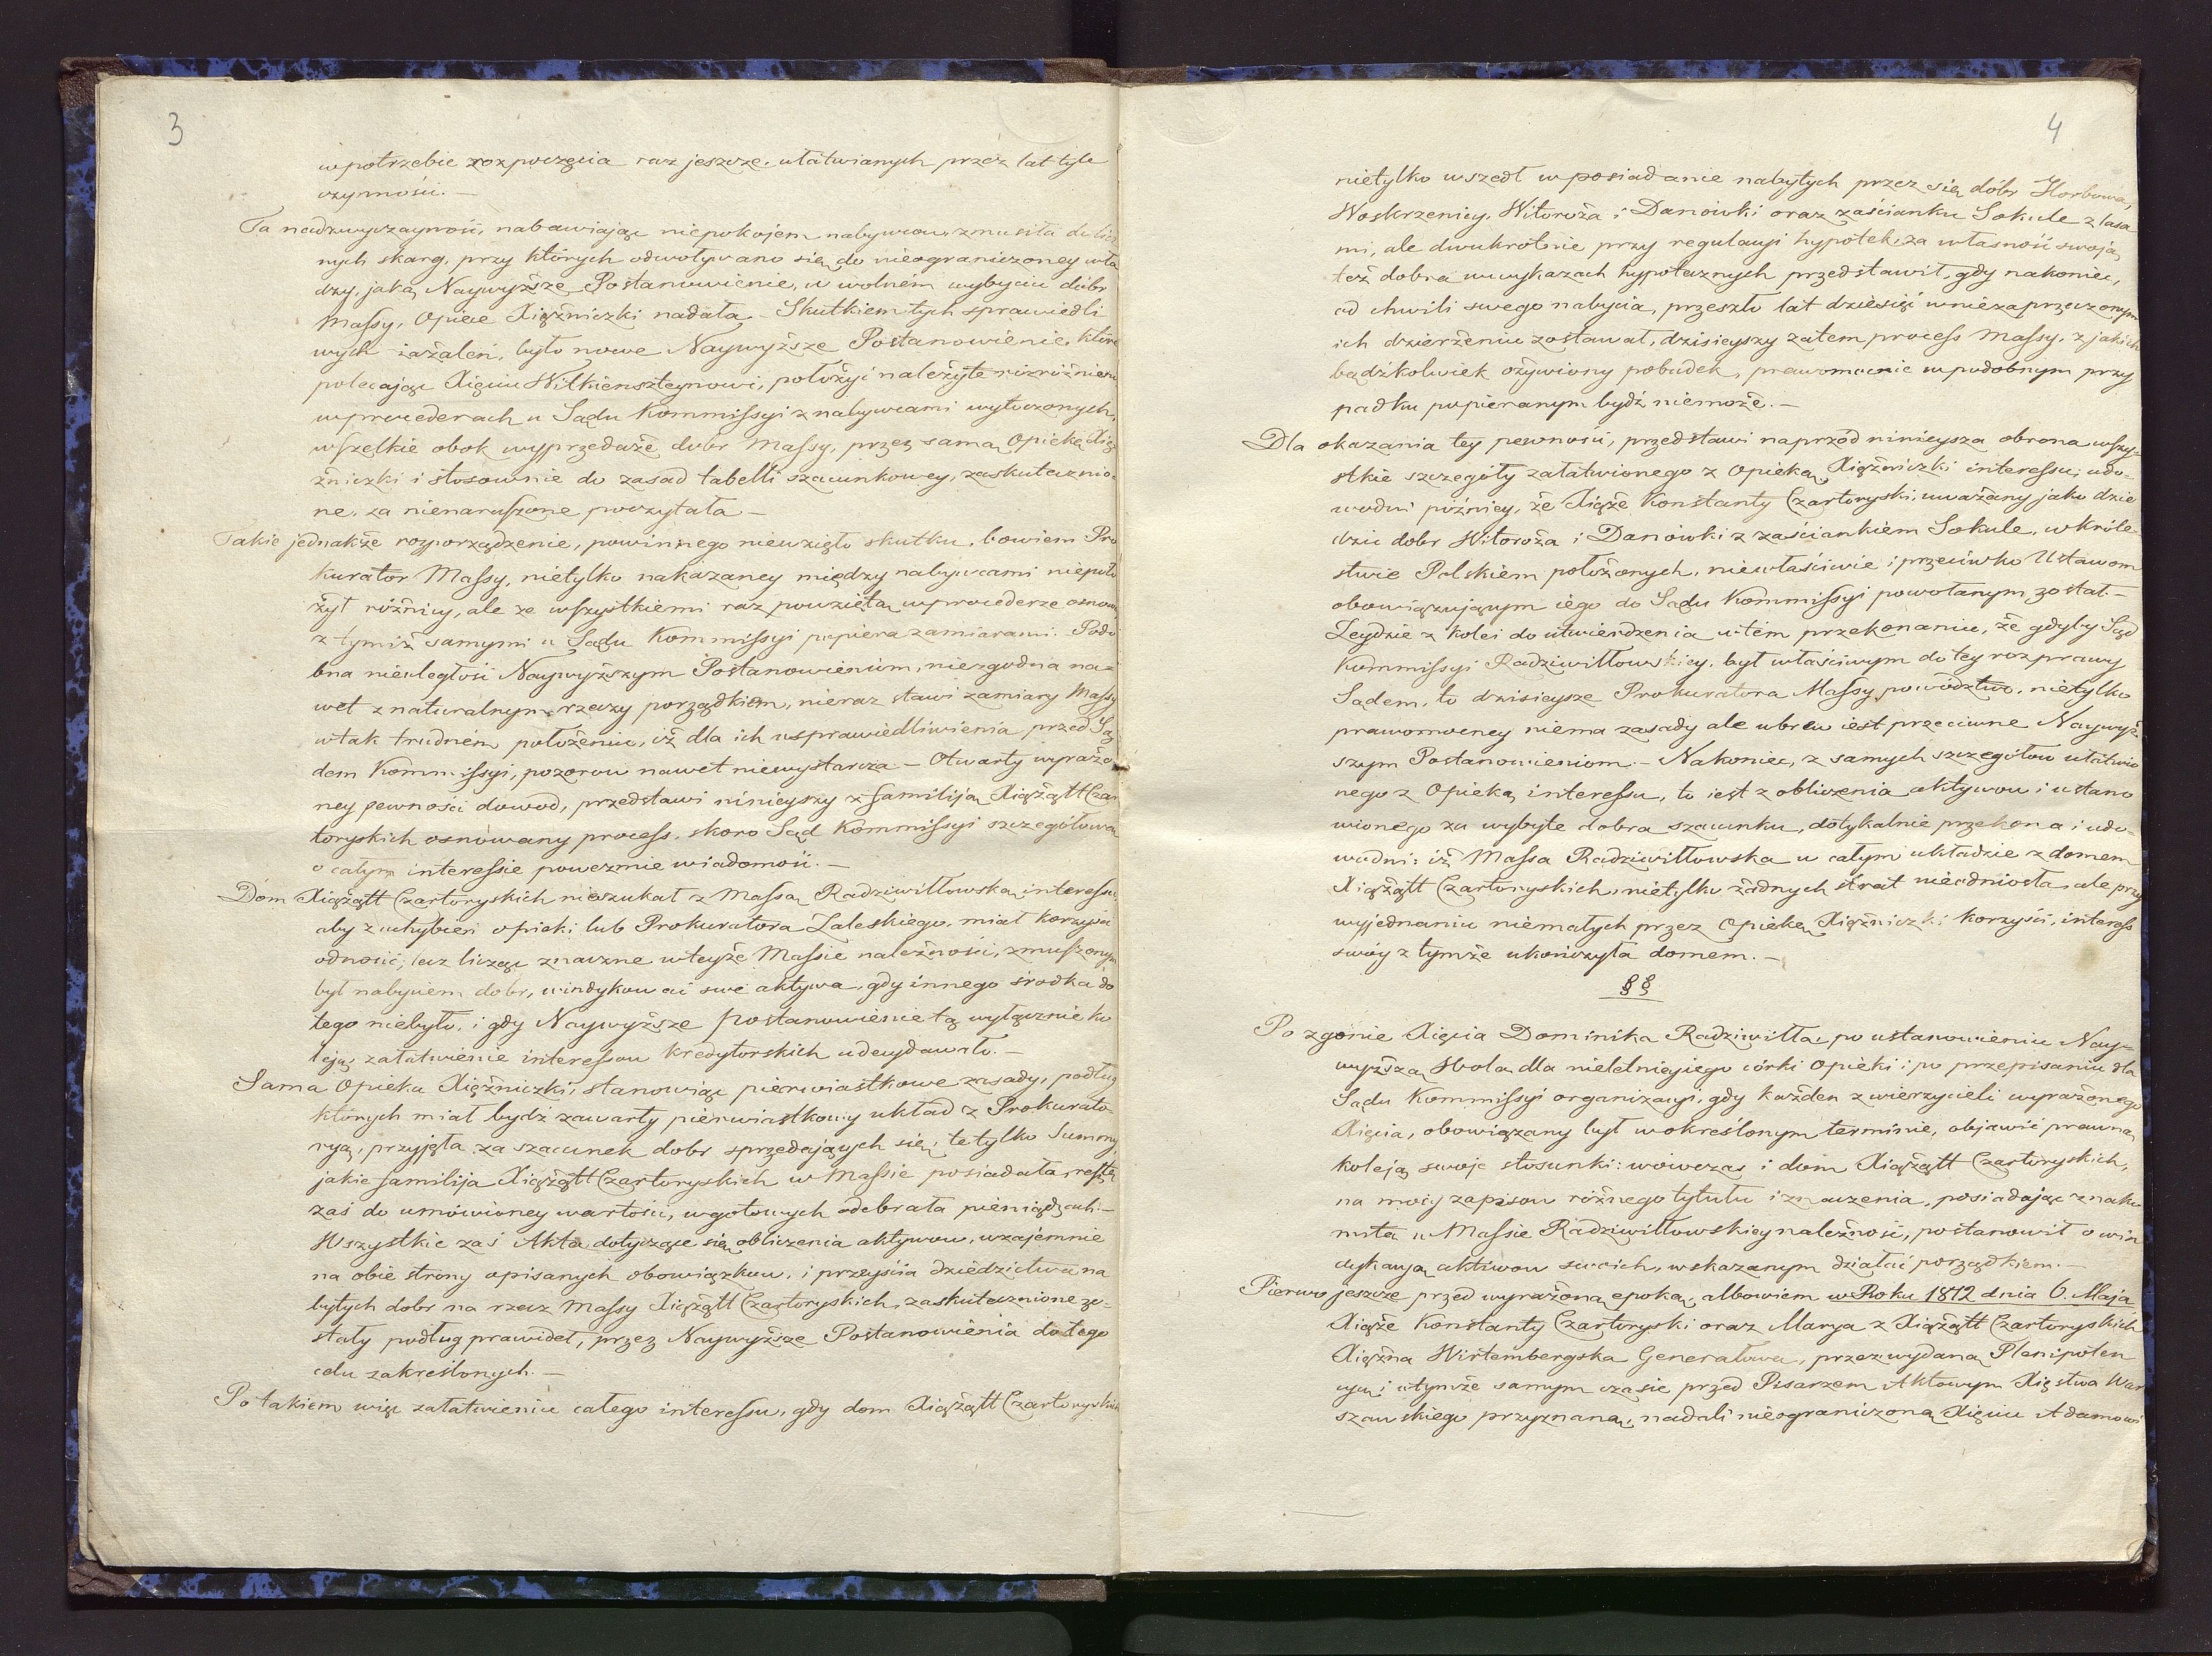 3
w potrzebie rozpoczęcia raz jeszcze, ułatwianych przez lat tyle
czynności. —
Ta nadzwyczayność, nabawiając niepokojem nabywców, zmusiła do licz
nych skarg, przy których odwoływano się do nieograniczoney wła
dzy, jaką Naywyższe Postanowienie, w wolném wybyciu dóbr
Massy, Opiece Xiężniczki nadała — Skutkiem tych sprawiedli
wych zażaleń, było nowe Naywyższe Postanowienie, które
polecając Xięciu Witkienszteynowi, położyć należyte rozróżnienie
w procederach u Sądu Kommissyi z nabywcami wytoczonych,
wszelkie obok wyprzedaże dobr Massy, przez samą Opiekę Xię
żniczki i stosownie do zasad tabelli szacunkowey, zaskutecznio-
ne, za nienaruszone poczytała —
Takie jednakże rozporządzenie, powinnego niewzięło skutku, bowiem Pro
kurator Massy, nietylko nakazaney między nabywcami niepoło
żył różnicy, ale ze wszystkiemi raz powziętą w procederze osnow
z tymiż samymi u Sądu Kommissyi popiera zamiarami. Podo
bna nieuległość Naywyższym Postanowieniom, niezgodna na-
wet z naturalnym rzeczy porządkiem, nieraz stawi zamiary Massy
w tak trudném położeniu, iż dla ich usprawiedliwienia przed Są
dem Kommissyi, pozorow nawet niewystarcza — Otwarty wyrażo
ney pewności dowod, przedstawi ninieyszy z familiją Xiążątt Czar
toryskich osnowany process, skoro Sąd Kommissyi szczegółową
o całym interessie poweźmie wiadomość. —
Dom Xiążątt Czartoryskich nieszukał z Massą Radziwiłłowską interessu,
aby z uchybień opieki lub Prokuratora Zaleskiego, miał korzyści
odnosić, lecz licząc znaczne w teyże Massie należności, zmuszonym
był nabyciem dobr, windykować swe aktywa, gdy innego środka do
tego niebyło, i gdy Naywyższe postanowienie tą wyłącznie ko
leją, załatwienie interessow kredytorskich udecydowało. —
Sama Opieka Xiężniczki, stanowiąc pierwiastkowe zasady, podług
których miał bydź zawarty pierwiastkowy układ z Prokurato-
ryą, przyjęła za szacunek dobr sprzedających się, te tylko Summy
jakie familija Xiążątt Czartoryskich w Massie posiadała, resztę
zaś do umówioney wartości, w gotowych odebrała pieniądzach. —
Wszystkie zaś Akta dotyczące się obliczenia aktywow, wzajemnie
na obie strony opisanych obowiązkow, i przeyścia dziedzictwa na
bytych dobr na rzecz Massy Xiążątt Czartoryskich, zaskutecznione zo-
stały podług prawideł, przez Naywyższe Postanowienia do tego
celu zakreślonych. —
Po takiem więc załatwieniu całego interessu, gdy dom Xiążątt Czartoryskich
4
nietylko wszedł w posiadanie nabytych przez się dóbr Horbowa,
Woskrzenicy, Witoroża i Danówki oraz zaścianku Sokule z lasa
mi, ale dwukrotnie przy regulacyi hypotek, za własność swoją
też dobra w wykazach hypotecznych przedstawił, gdy nakoniec,
od chwili swego nabycia, przeszło lat dziesięć w niezaprzeczonym
ich dzierżeniu zostawał, dzisieyszy zatem process Massy, z jakich
bądźkolwiek ożywiony pobudek, prawomocnie w podobnym przy
padku popieranym bydź niemoże. —
Dla okazania tey pewności, przedstawi naprzód ninieysza obrona wszy-
stkie szczegóły załatwionego z Opieką Xiężniczki interessu; udo-
wodni późniey, że Xiąże Konstanty Czartoryski, uważany jako dzie
dzic dobr Witoroża i Danówki z zaściankiem Sokule, w króle-
stwie Polskiém położonych, niewłaściwie i przeciwko Ustawom
obowiązującym iego do Sądu Kommissyi powołanym został. —
Zeydzie z kolei do utwierdzenia w tém przekonaniu, że gdyby Sąd
Kommissyi Radziwiłłowskiey, był właściwym do tey rozprawy
Sądem, to dzisieysze Prokuratora Massy powództwo, nietylko
prawomocney niema zasady ale wbrew iest przeciwne Naywyż-
szym Postanowieniom. — Nakoniec, z samych szczegółow ułatwio
nego z Opieką interessu, to iest z obliczenia aktywow i ustano
wionego za wybyte dobra szacunku, dotykalnie przekona i udo-
wodni: iż Massa Radziwiłłowska w całym układzie z domem
Xiążątt Czartoryskich, nietylko żadnych strat nieodniosła, ale przy
wyjednaniu niemałych przez Opiekę Xiężniczki korzyści, interess
swóy z tymże ukończyła domem. —
§§
Po zgonie Xięcia Dominika Radziwiłła, po ustanowieniu Nay-
wyższą Wolą dla nieletniejego córki Opieki i po przepisaniu dla
Sądu Kommissyi organizacyi, gdy każden z wierzycieli wyrażonego
Xięcia, obowiązany był w określonym terminie, objawić prawną
koleją swoje stosunki: wówczas i dom Xiążątt Czartoryskich,
na mocy zapisow różnego tytułu i znaczenia, posiadając znako
mitą w Massie Radziwiłłowskiey należność, postanowił o win
dykacyą aktiwow swoich, wskazanym działać porządkiem. —
Pierwo jeszcze przed wyrażoną epoką, albowiem w Roku 1812 dnia 6. Maja
Xiąże Konstanty Czartoryski oraz Marya z Xiążątt Czartoryskich
Xiężna Wirtembergska Generałowa, przez wydaną Plenipoten
cyą i w tymże samym czasie przed Pisarzem Aktowym Xięstwa War
szawskiego przyznaną, nadali nieograniczoną Xięciu Adamowi